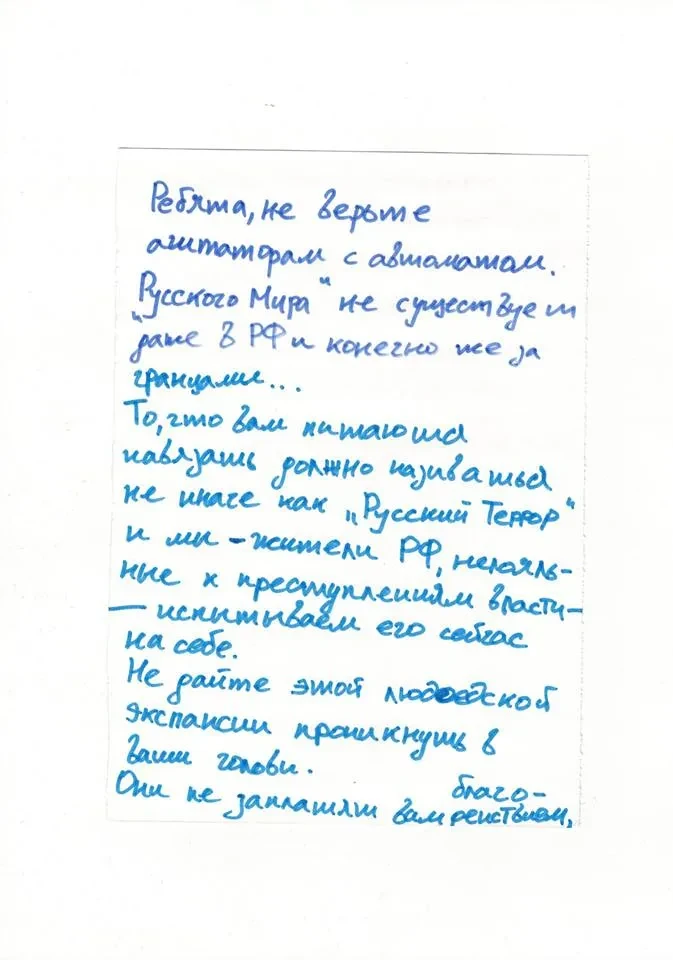 Ребята, не верьте
агитаторам с автоматом.
„Русского Мира" не существует
даже в РФ и конечно же за
гранцами...
То, что вам питаются
навязать должно называться
не иначе как „Русский Террор"
и ми – жители РФ, нелояль-
ные к преступлениям власти –
— испытываем его сейчас
на себе.
Не дайте этой людоедской
экспансии проникнуть в
ваши голови.
Они не заплатят вам благо-
денствием,